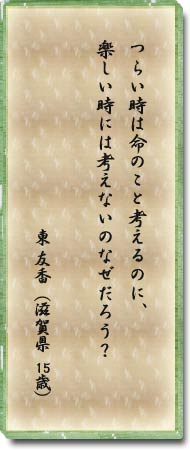 つらい時は命のこと考えるのに、
楽しい時には考えないのなぜだろう？
東 友香 （滋賀県 15歳）